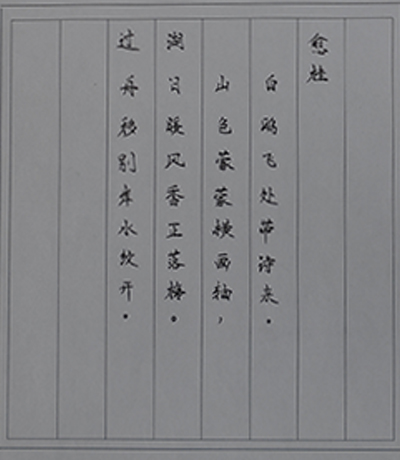 过舟移别岸水纹开。
湖日暖风香正落梅。
山色蒙蒙横画轴，
白鸥飞处带诗来。
愈桂